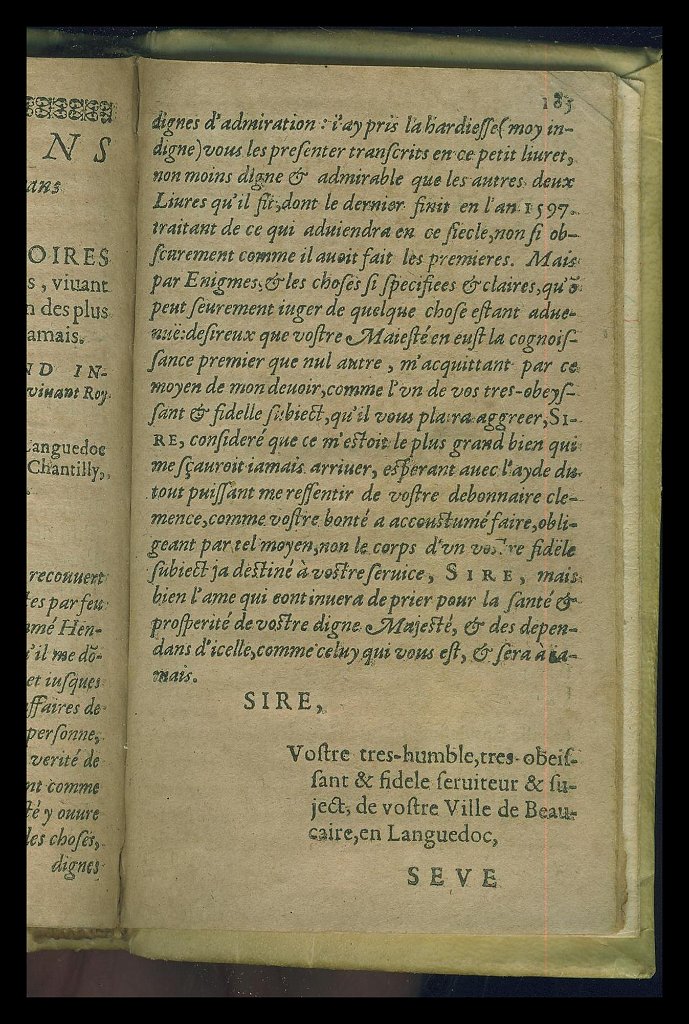 N S
ans
OIRES
s, viuant
n des plus
amais.
ND IN-
viuant Roy
Languedoc
Chantilly,
recouuert
tes par feu
mé Hen-
u'il me dõ-
et iusques
ffaires de
personne,
verité de
nt comme
té y ouure
les choses,
dignes
185
dignes d'admiration : i'ay pris la hardiesse (moy in-
digne) vous les presenter transcrits en ce petit liuret,
non moins digne & admirable que les autres deux
Liures qu'il fit, dont le dernier finit en l'an 1597.
traitant de ce qui aduiendra en ce siecle, non si ob-
scurement comme il auoit fait les premieres. Mais
par Enigmes, & les choses si specifiees & claires, qu'õ
peut seurement iuger de quelque chose estant adue-
nuë: desireux que vostre Maiesté en eust la cognois-
sance premier que nul autre, m'acquittant par ce
moyen de mon deuoir, comme l'vn de vos tres-obeys-
sant & fidelle subiect, qu'il vous plaira aggreer, SI-
RE, consideré que ce m'estoit le plus grand bien qui
me sçauroit iamais arriuer, esperant auec l'ayde du
tout puissant me ressentir de vostre debonnaire cle-
mence, comme vostre bonté a accoustumé faire, obli-
geant par tel moyen, non le corps d'vn vostre fidele
subiect ja destiné à vostre seruice, SIRE, mais
bien l'ame qui continuera de prier pour la santé &
prosperité de vostre digne Majesté, & des depen-
dans d'icelle, comme celuy qui vous est, & sera à ia-
mais.
SIRE,
Vostre tres-humble, tres-obeis-
sant & fidele seruiteur & su-
ject, de vostre Ville de Beau-
caire, en Languedoc,
SEVE